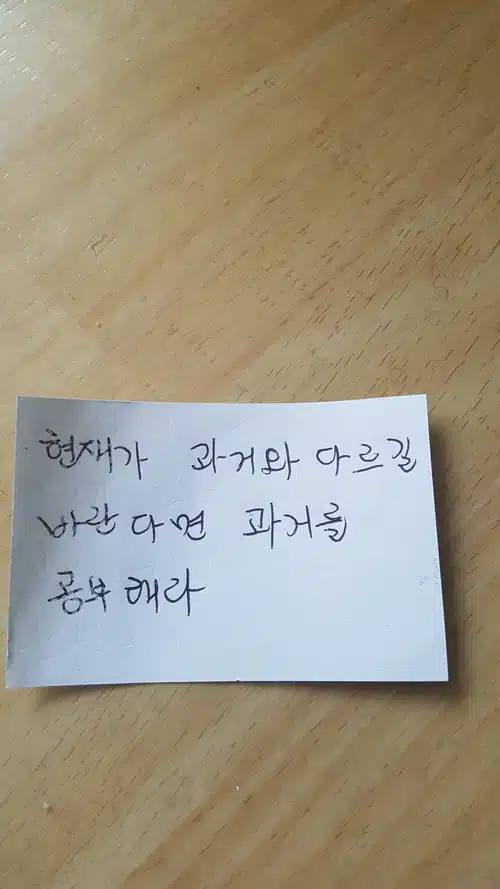 현재가 과거와 다르길
바란다면 과거를
공부해라